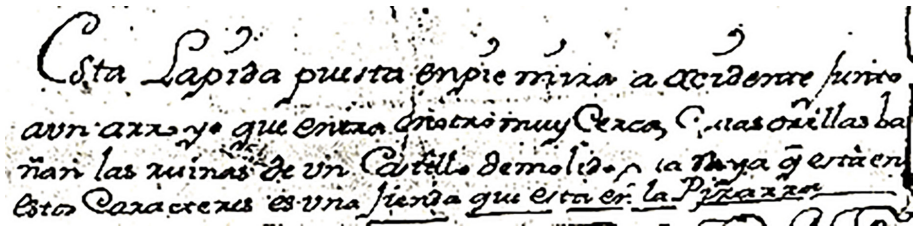 Esta Lapida puesta enpie mira a occidente junto
aun arroyo que entra enotro muy Cerca, Cuias orillas ba
ñan las ruinas de un Castillo demolido, la Raya q̃ està en
estos Caracteres es una senda que esta en la Pizarra